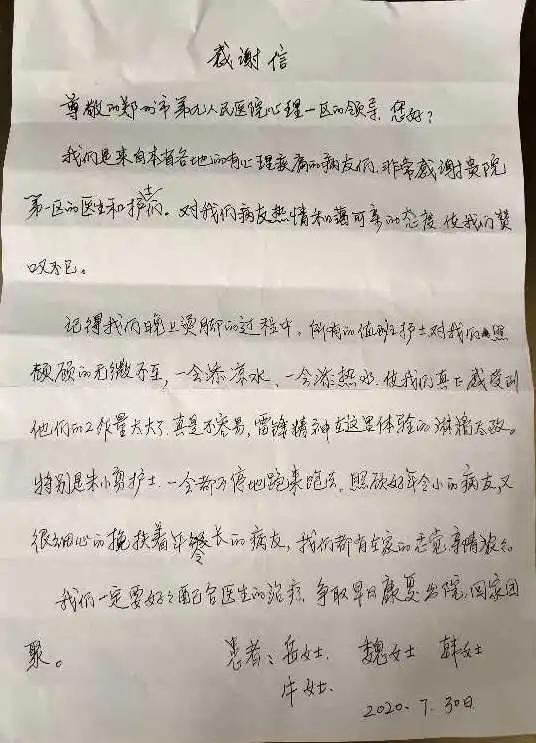 感谢信
尊敬的郑州市第九人民医院心理一区的领导，您好？
我们是来自本省各地的有心理疾病的病友们，非常感谢贵院
第一区的医生和护士们。对我们病友热情和蔼可亲的态度，使我们赞
叹不已。
记得我们晚上烫脚的过程中，所有的值班护士对我们照
顾的无微不至，一会添凉水，一会添热水，使我们真正感受到
他们的工作量太大了，真是不容易，雷锋精神在这里体验的淋漓尽致。
特别是朱小剪护士，一会都不停地跑来跑去，照顾好年令小的病友，又
很细心的搀扶着年令长的病友，我们都有在家的感觉，亲情浓浓。
我们一定要好好配合医生的治疗，争取早日康复出院，回家团
聚。
患者：岳女士 魏女士 韩女士
牛女士
2020.7.30日